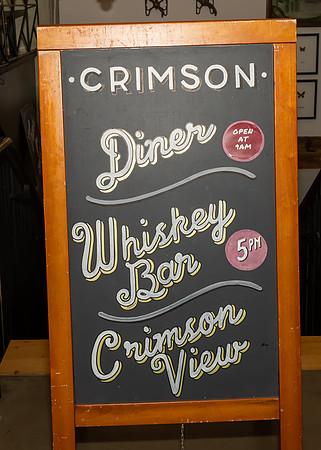 · CRIMSON ·
Diner
OPEN
AT
9AM
Whiskey
Bar
5PM
Crimson
View